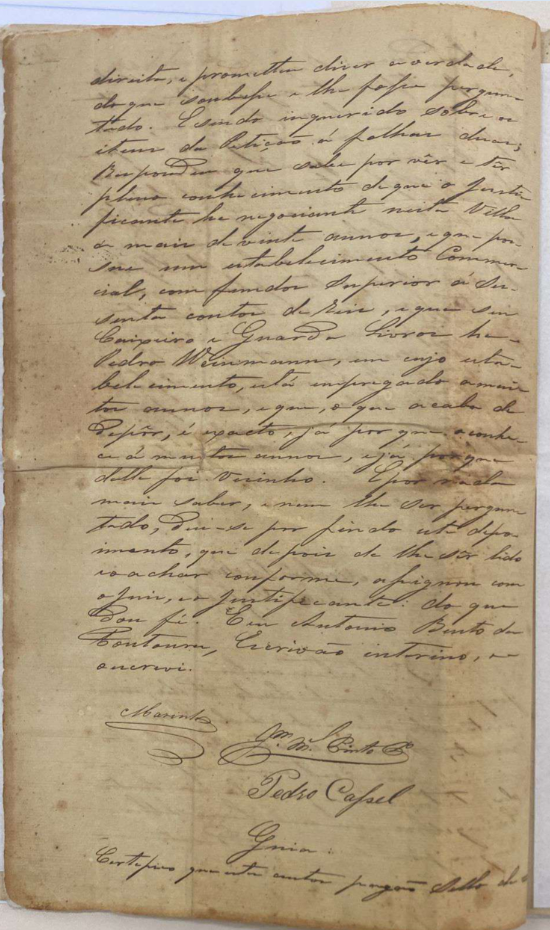 direita, e prometteu dizer a verdade,
do que soubesse e lhe fosse pergun-
tado. E sendo inquerido sobre os
itens da Petição á folhas duas,
Respondeu que sabe por vêr e têr
pleno conhecimento de que o Justi-
ficante he negociante nesta Villa
a mais de vinte annos, e que pos-
sue um estabelecimento Commer-
cial, com fundos superior á Se-
senta contos de Reis, e que seu
Caixeiro e Guarda Livros he
Pedro Weinmann, em cujo esta-
belecimento, está empregado a muis-
tos annos, e que, o que acaba de
Depôr, é exacto, já por que conhe-
ce á muitos annos, e já porque
delle foi vesinho. E por nada
mais saber, e nem lhe ser pergun-
tado, Deu-se por findo este depoi-
mento, que depois de lhe ser lido
e o achar conforme, assignou com
o Juiz, e o Justificante: do que
Dou fé. Eu Antonio Bento da
Fontoura, Escrivão interino, o
escrevi.
Marinho
Pinto
Pedro Cassel
Guia
Certifico que estes autos pagão Sello de